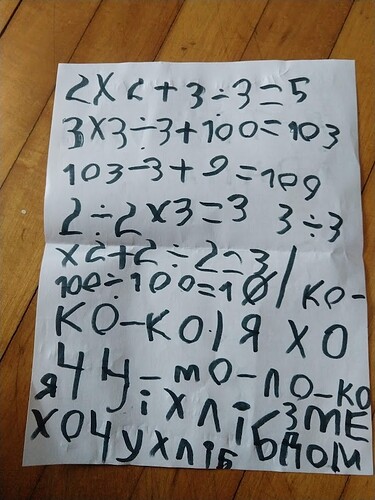 2×2+3÷3=5
3×3÷3+100=103
103-3+9=109
2÷2×3=3 3÷3
×2+2÷2=3/
100÷100=10/КО-
КО-КО/Я ХО
ЧУ-МО-ЛО-КО
Я і ХЛІБ З МЕ
ХОЧУ ХЛІБ ДОМ